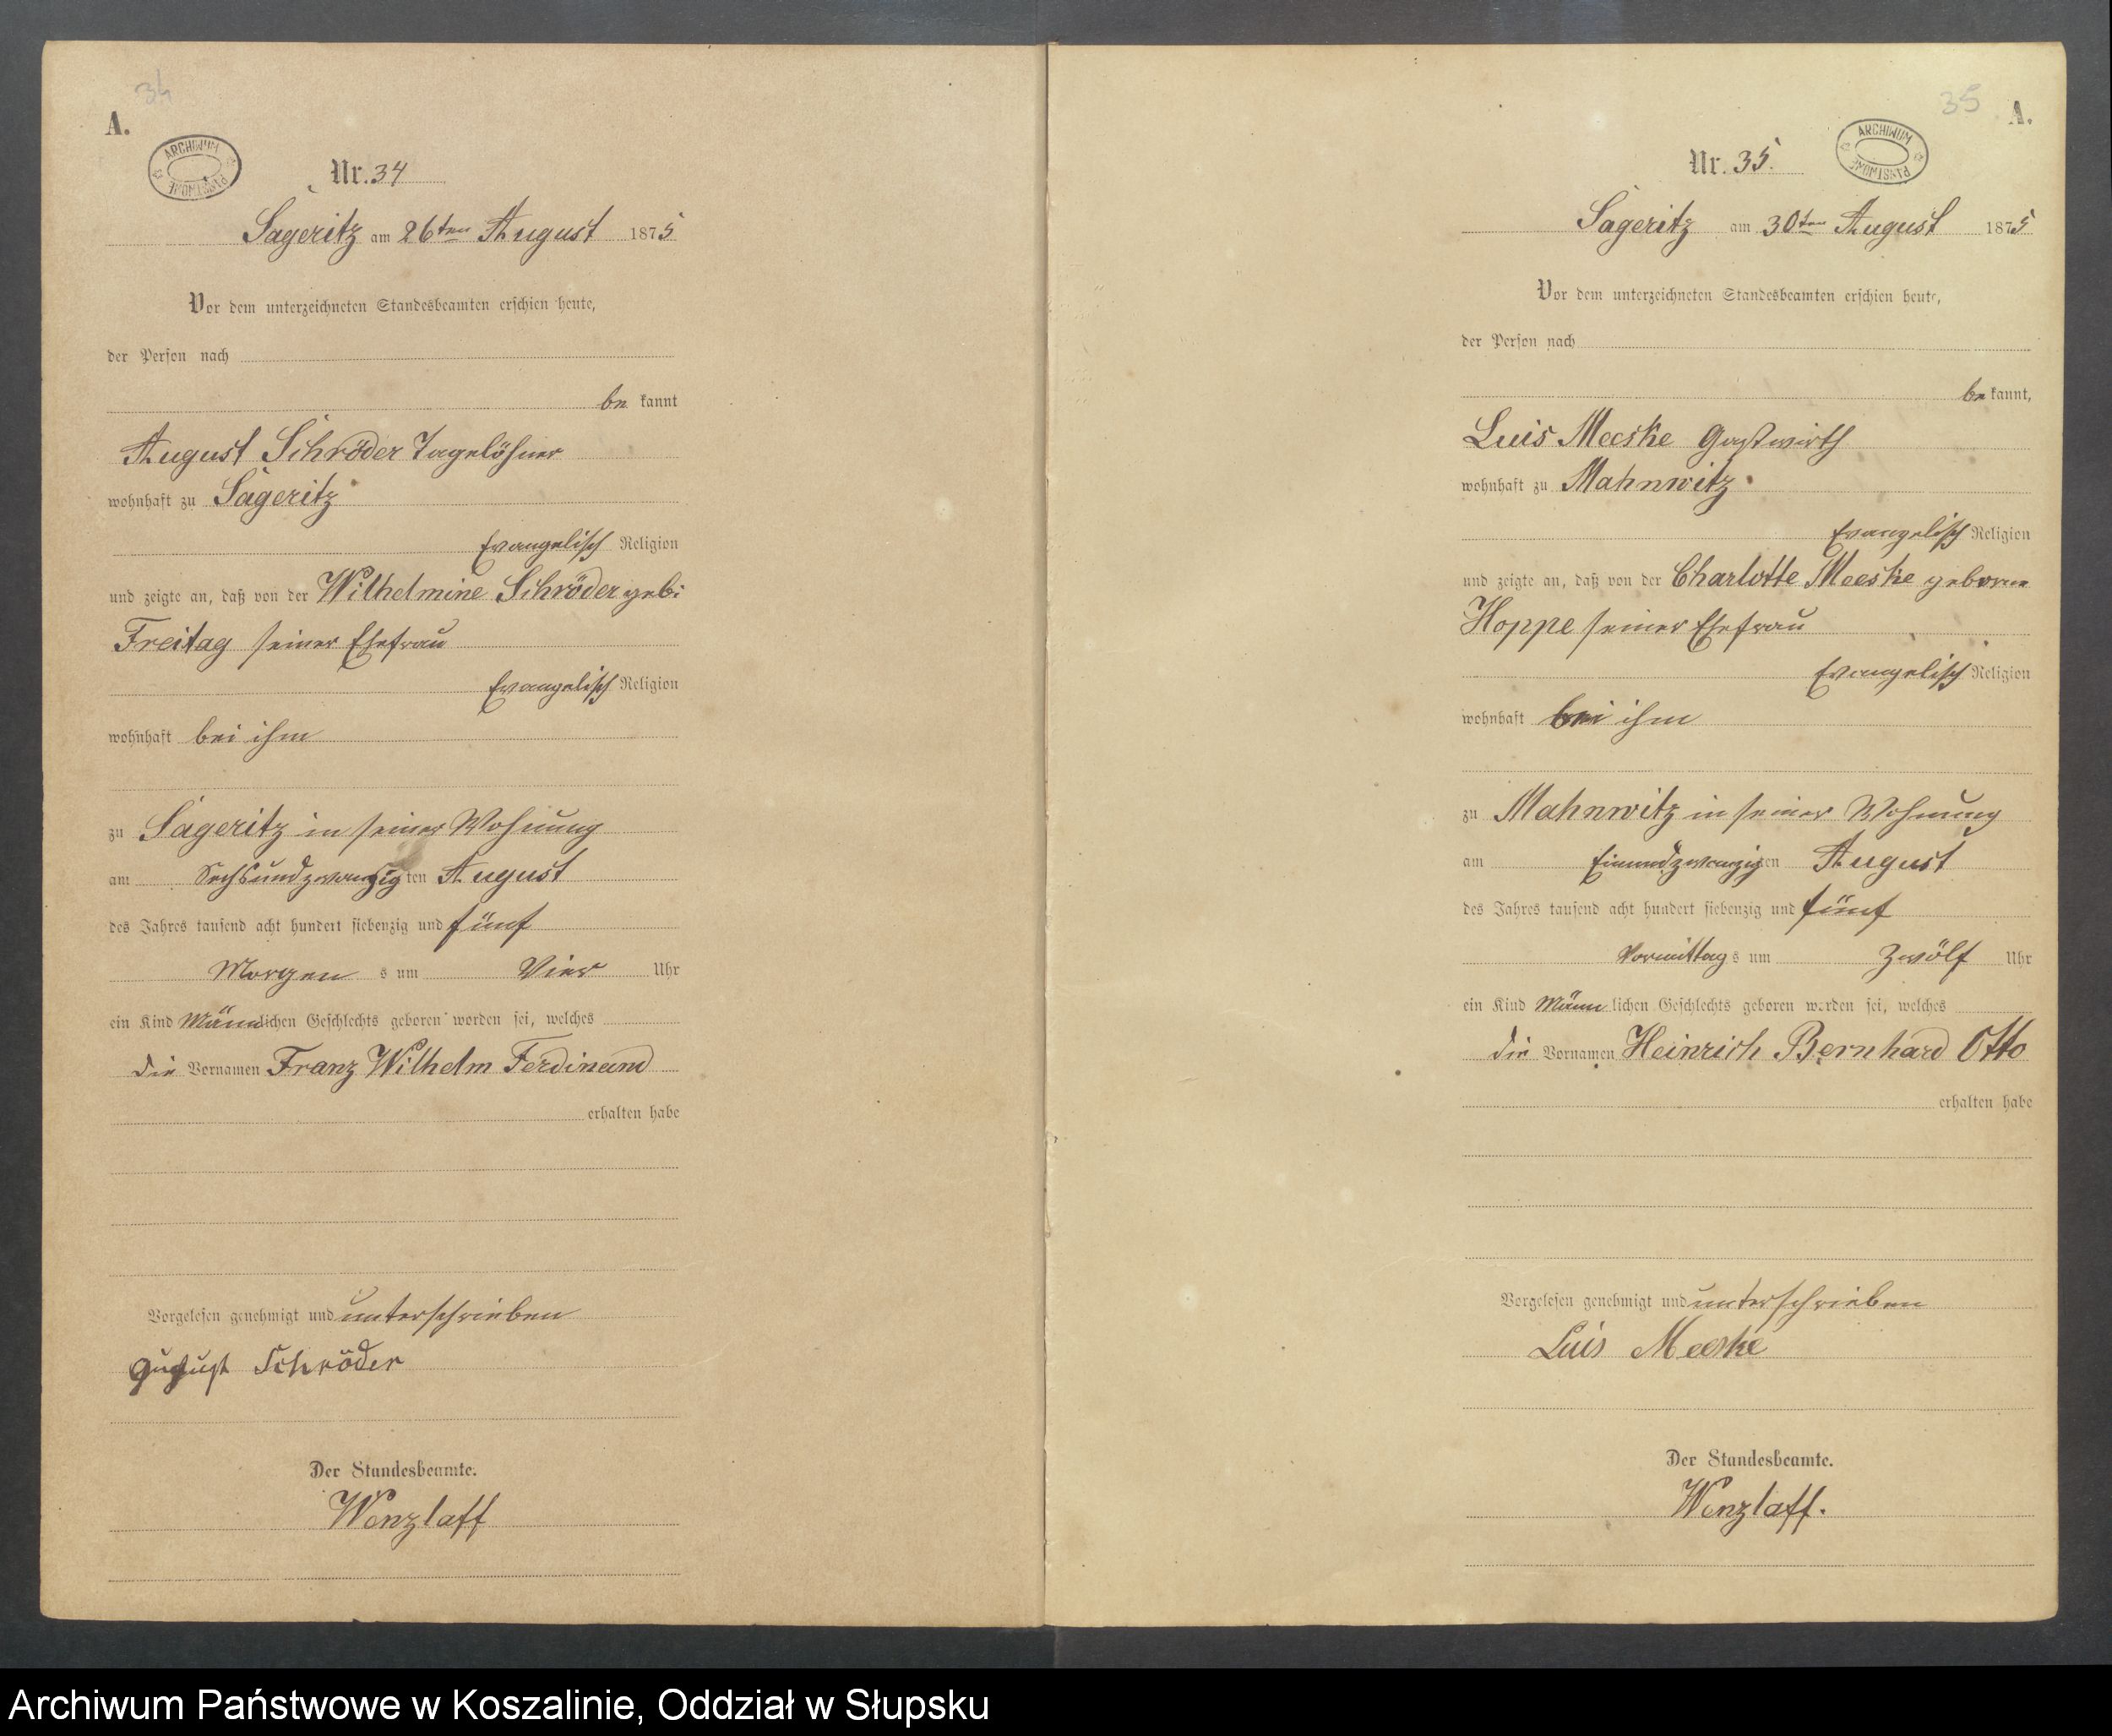 34
A.
ARCHIWUM PAŃSTWOWE
Nr. 34
Sageritz am 26ten August 1875
Vor dem unterzeichneten Standesbeamten erschien heute,
der Person nach
be kannt
August Schröder Tagelöhner
wohnhaft zu Sageritz
Evangelisch Religion
und zeigte an, daß von der Wilhelmine Schröder geb:
Freitag seiner Ehefrau
Evangelisch Religion
wohnhaft bei ihm
zu Sageritz in seiner Wohnung
am Sechsundzwanzigten August
des Jahres tausend acht hundert siebenzig und fünf
Morgen s um Vier Uhr
ein Kind Männlichen Geschlechts geboren worden sei, welches
die Vornamen Franz Wilhelm Ferdinand
erhalten habe
Vorgelesen genehmigt und unterschrieben
August Schröder
Der Standesbeamte.
Wenzlaff
35
A.
ARCHIWUM PAŃSTWOWE
Nr. 35.
Sageritz am 30ten August 1875
Vor dem unterzeichneten Standesbeamten erschien heute,
der Person nach
be kannt,
Luis Meeske Gastwirth
wohnhaft zu Mahnwitz
Evangelisch Religion
und zeigte an, daß von der Charlotte Meeske geborne
Hoppe seiner Ehefrau
Evangelisch Religion
wohnhaft bei ihm
zu Mahnwitz in seiner Wohnung
am Einundzwanzigten August
des Jahres tausend acht hundert siebenzig und fünf
Vormittag s um Zwölf Uhr
ein Kind Männlichen Geschlechts geboren worden sei, welches
die Vornamen Heinrich Bernhard Otto
erhalten habe
Vorgelesen genehmigt und unterschrieben
Luis Meeske
Der Standesbeamte.
Wenzlaff.
Archiwum Państwowe w Koszalinie, Oddział w Słupsku